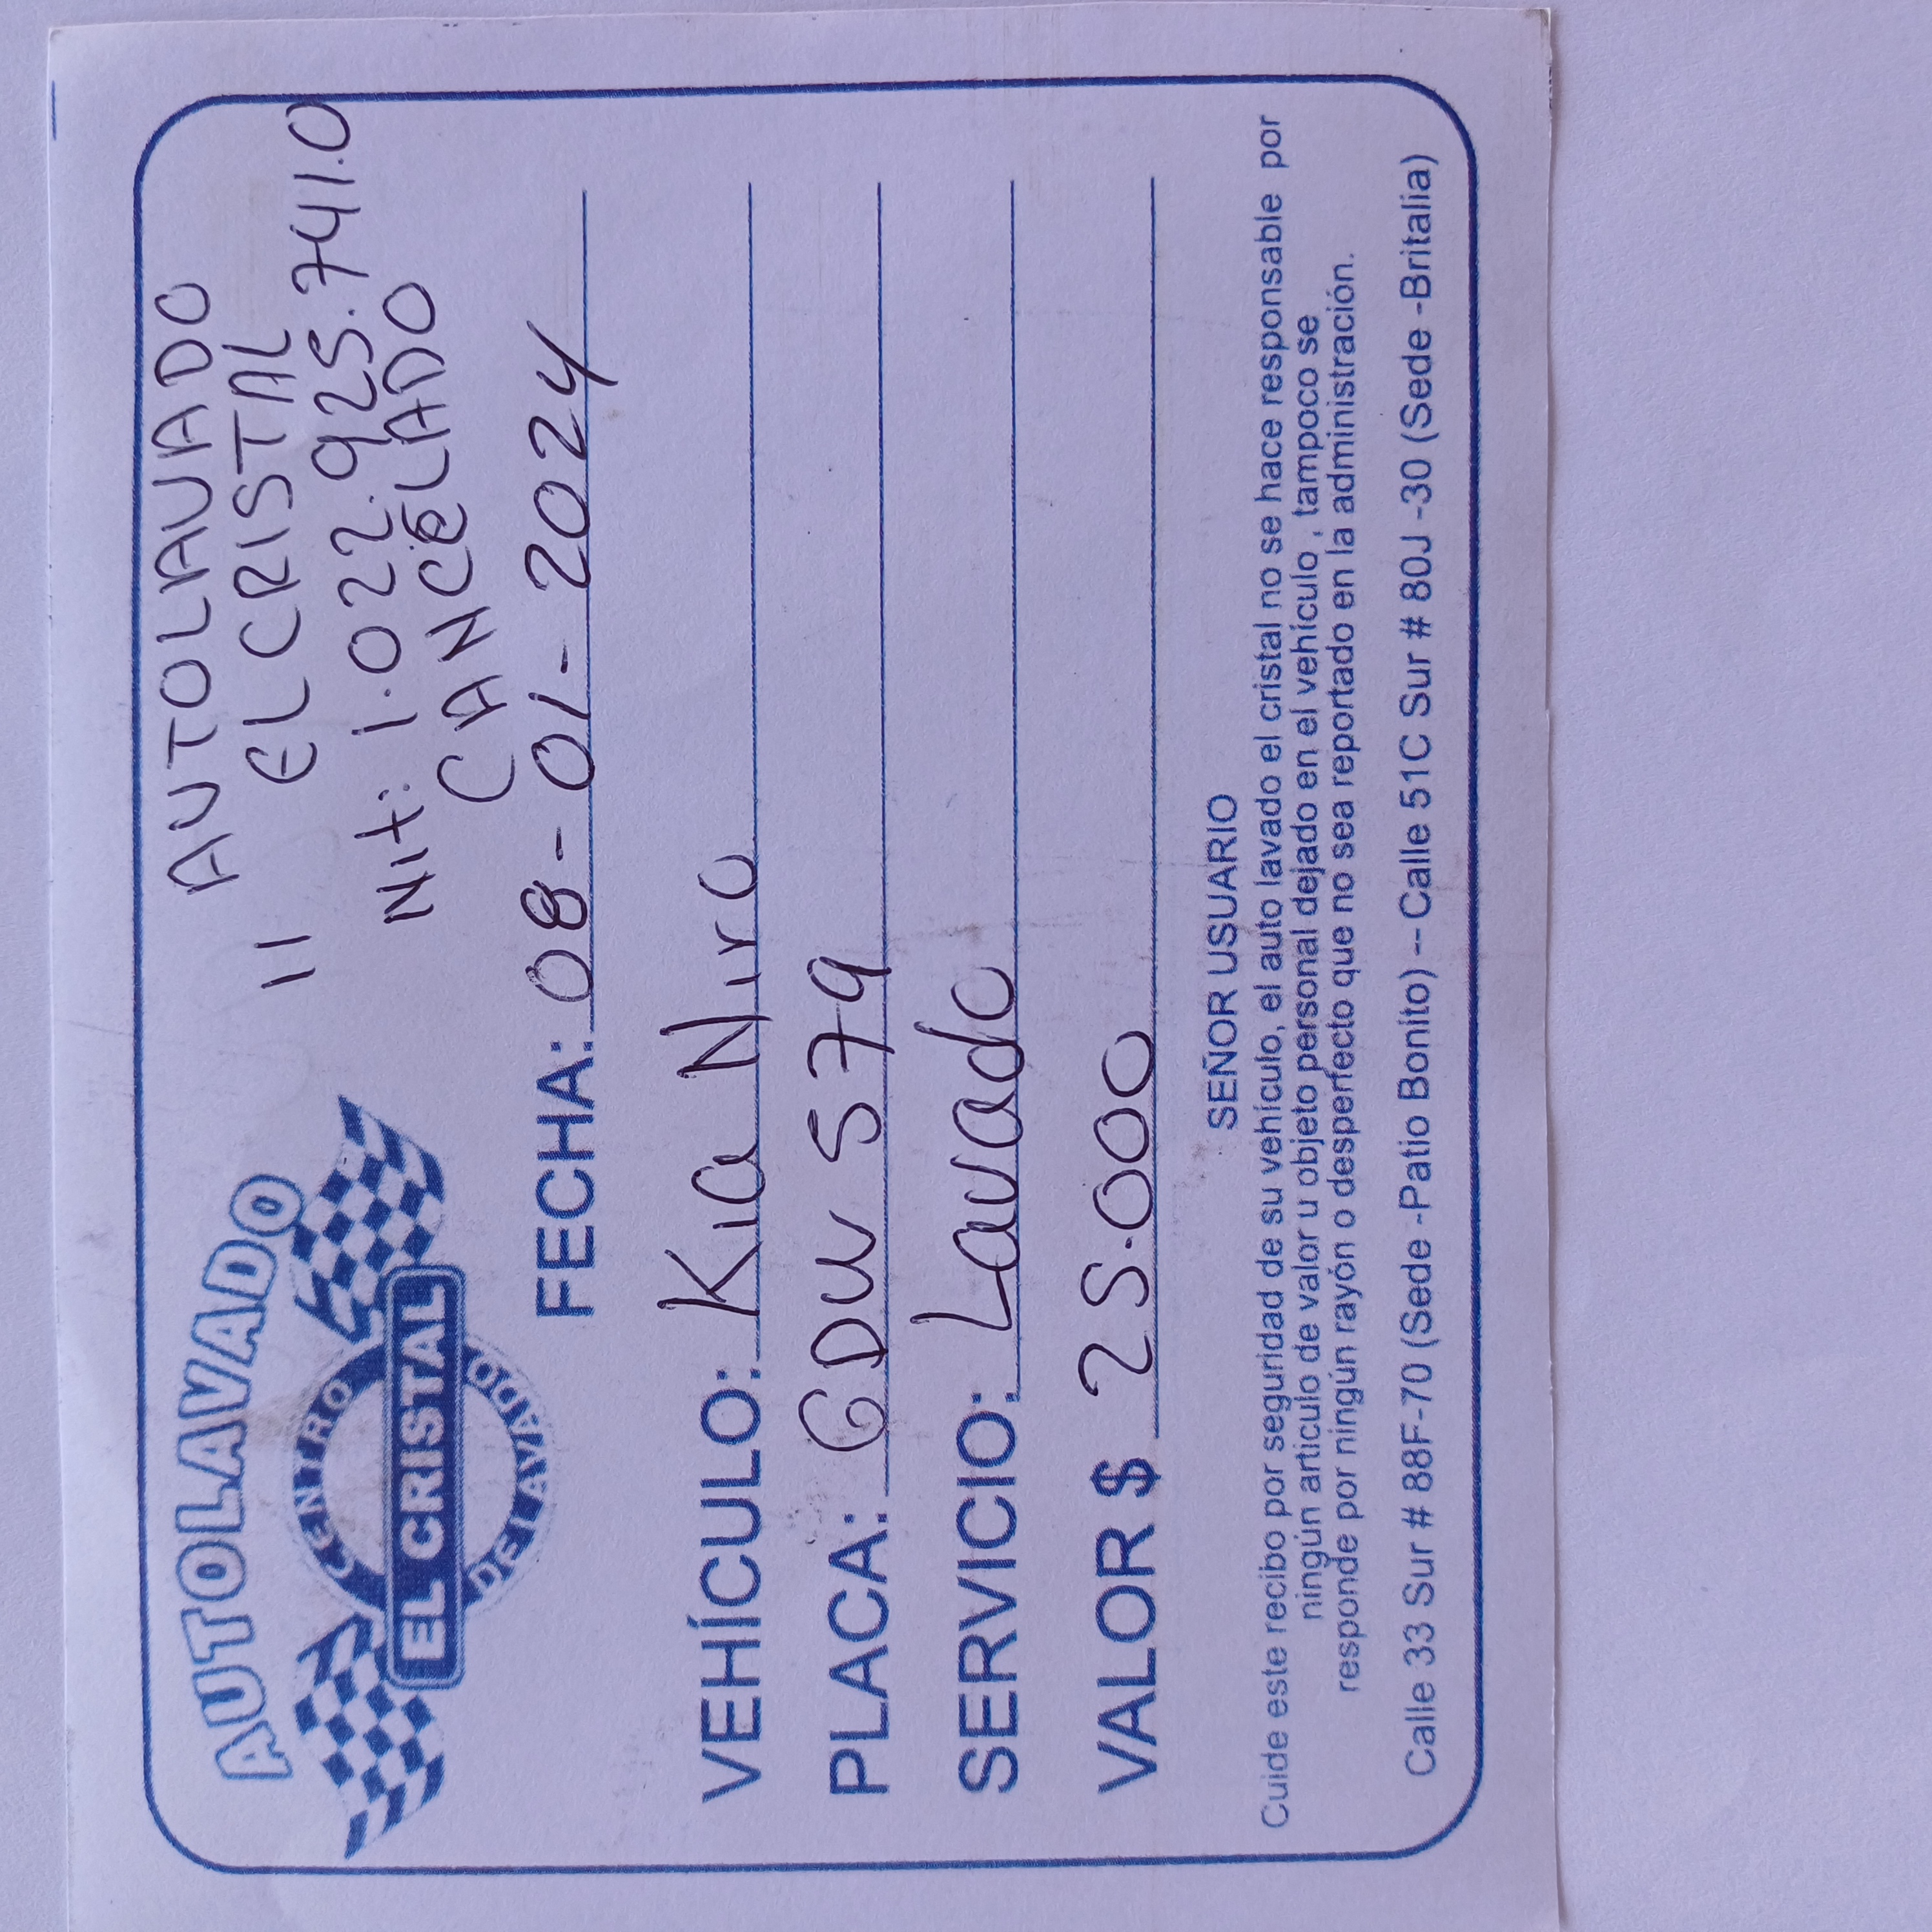 AUTOLAVADO
CENTRO
EL CRISTAL
DE LAVADO
AUTOLAVADO
" EL CRISTAL
Nit: 1.022.925.741.0
CANCELADO
FECHA: 08-01-2024
VEHÍCULO: Kia Niro
PLACA: GDW 579
SERVICIO: Lavado
VALOR $ 25.000
SEÑOR USUARIO
Cuide este recibo por seguridad de su vehículo, el auto lavado el cristal no se hace responsable por
ningún articulo de valor u objeto personal dejado en el vehículo , tampoco se
responde por ningún rayón o desperfecto que no sea reportado en la administración.
Calle 33 Sur # 88F-70 (Sede -Patio Bonito) -- Calle 51C Sur # 80J -30 (Sede -Britalia)